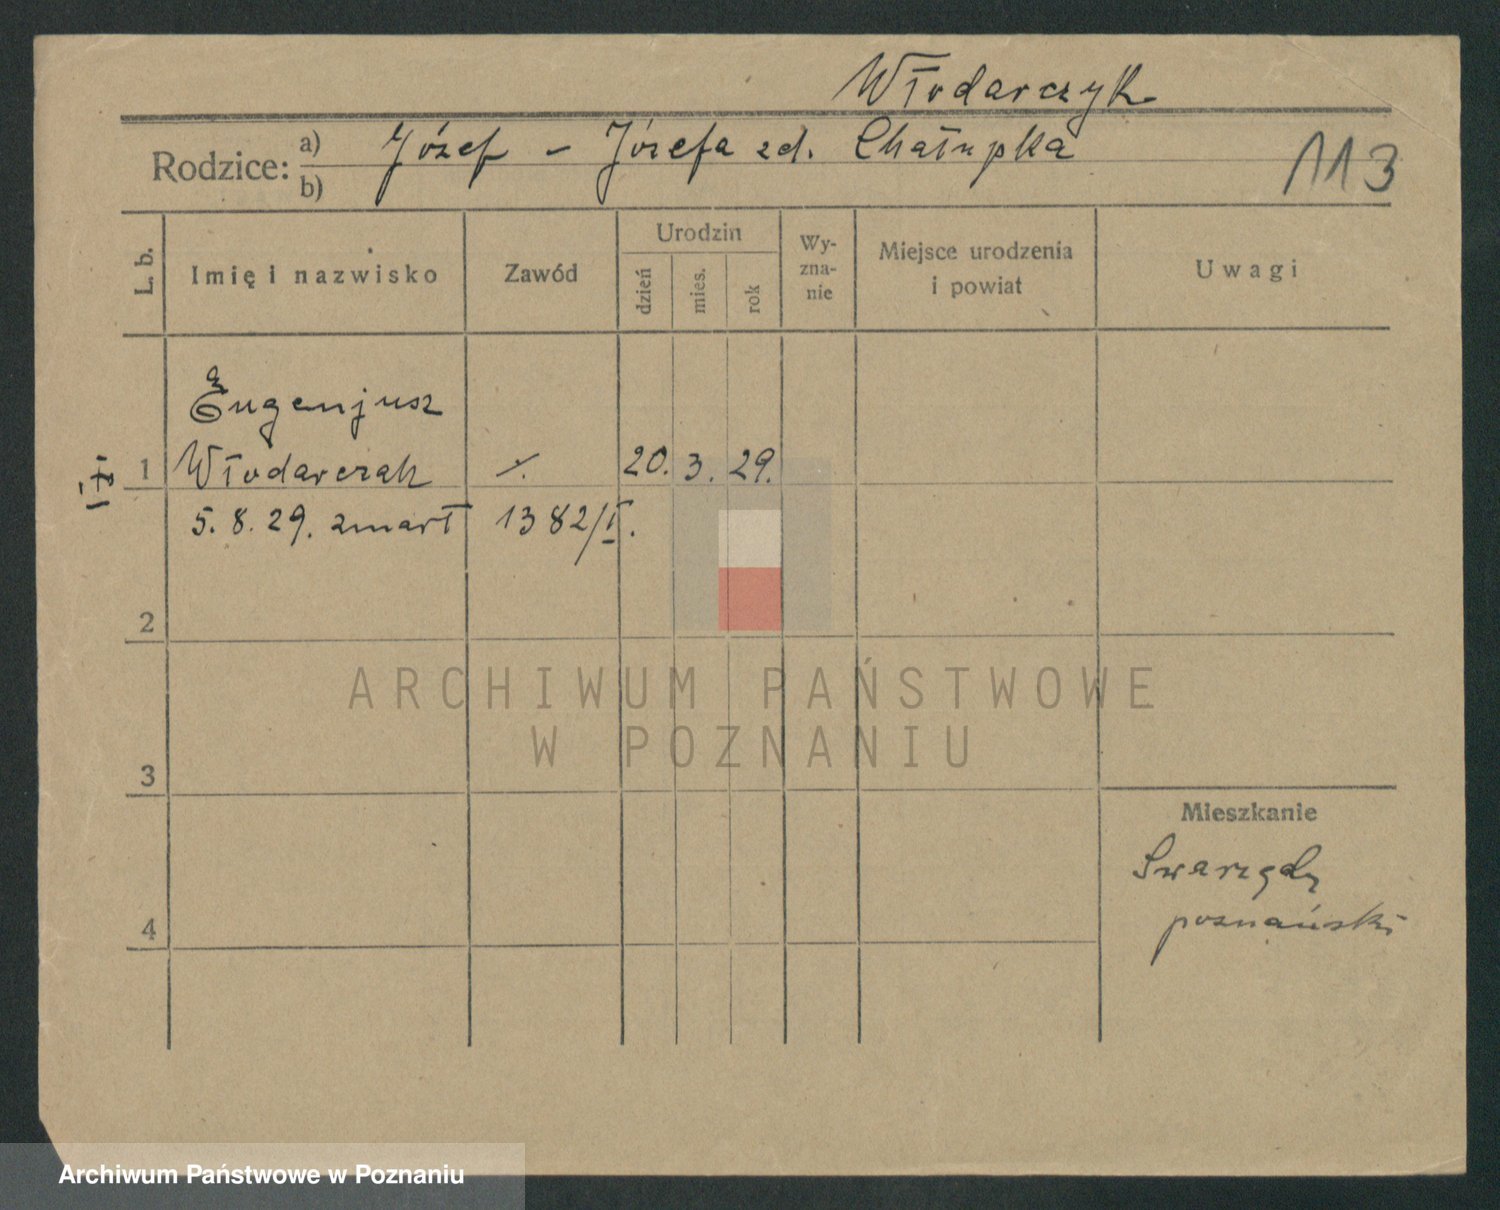 Włodarczyk
Rodzice: a) Józef – Józefa zd. Chałupka
b)
113
L. b.
Imię i nazwisko
Zawód
Urodzin
dzień
mies.
rok
Wy-
zna-
nie
Miejsce urodzenia
i powiat
Uwagi
Eugenjusz
1 Włodarczak ⁒ 20. 3. 29.
5. 8. 29. zmarł 1382/I.
2
3
4
Mieszkanie
Swarzędz
poznański
ARCHIWUM PAŃSTWOWE
W POZNANIU
Archiwum Państwowe w Poznaniu